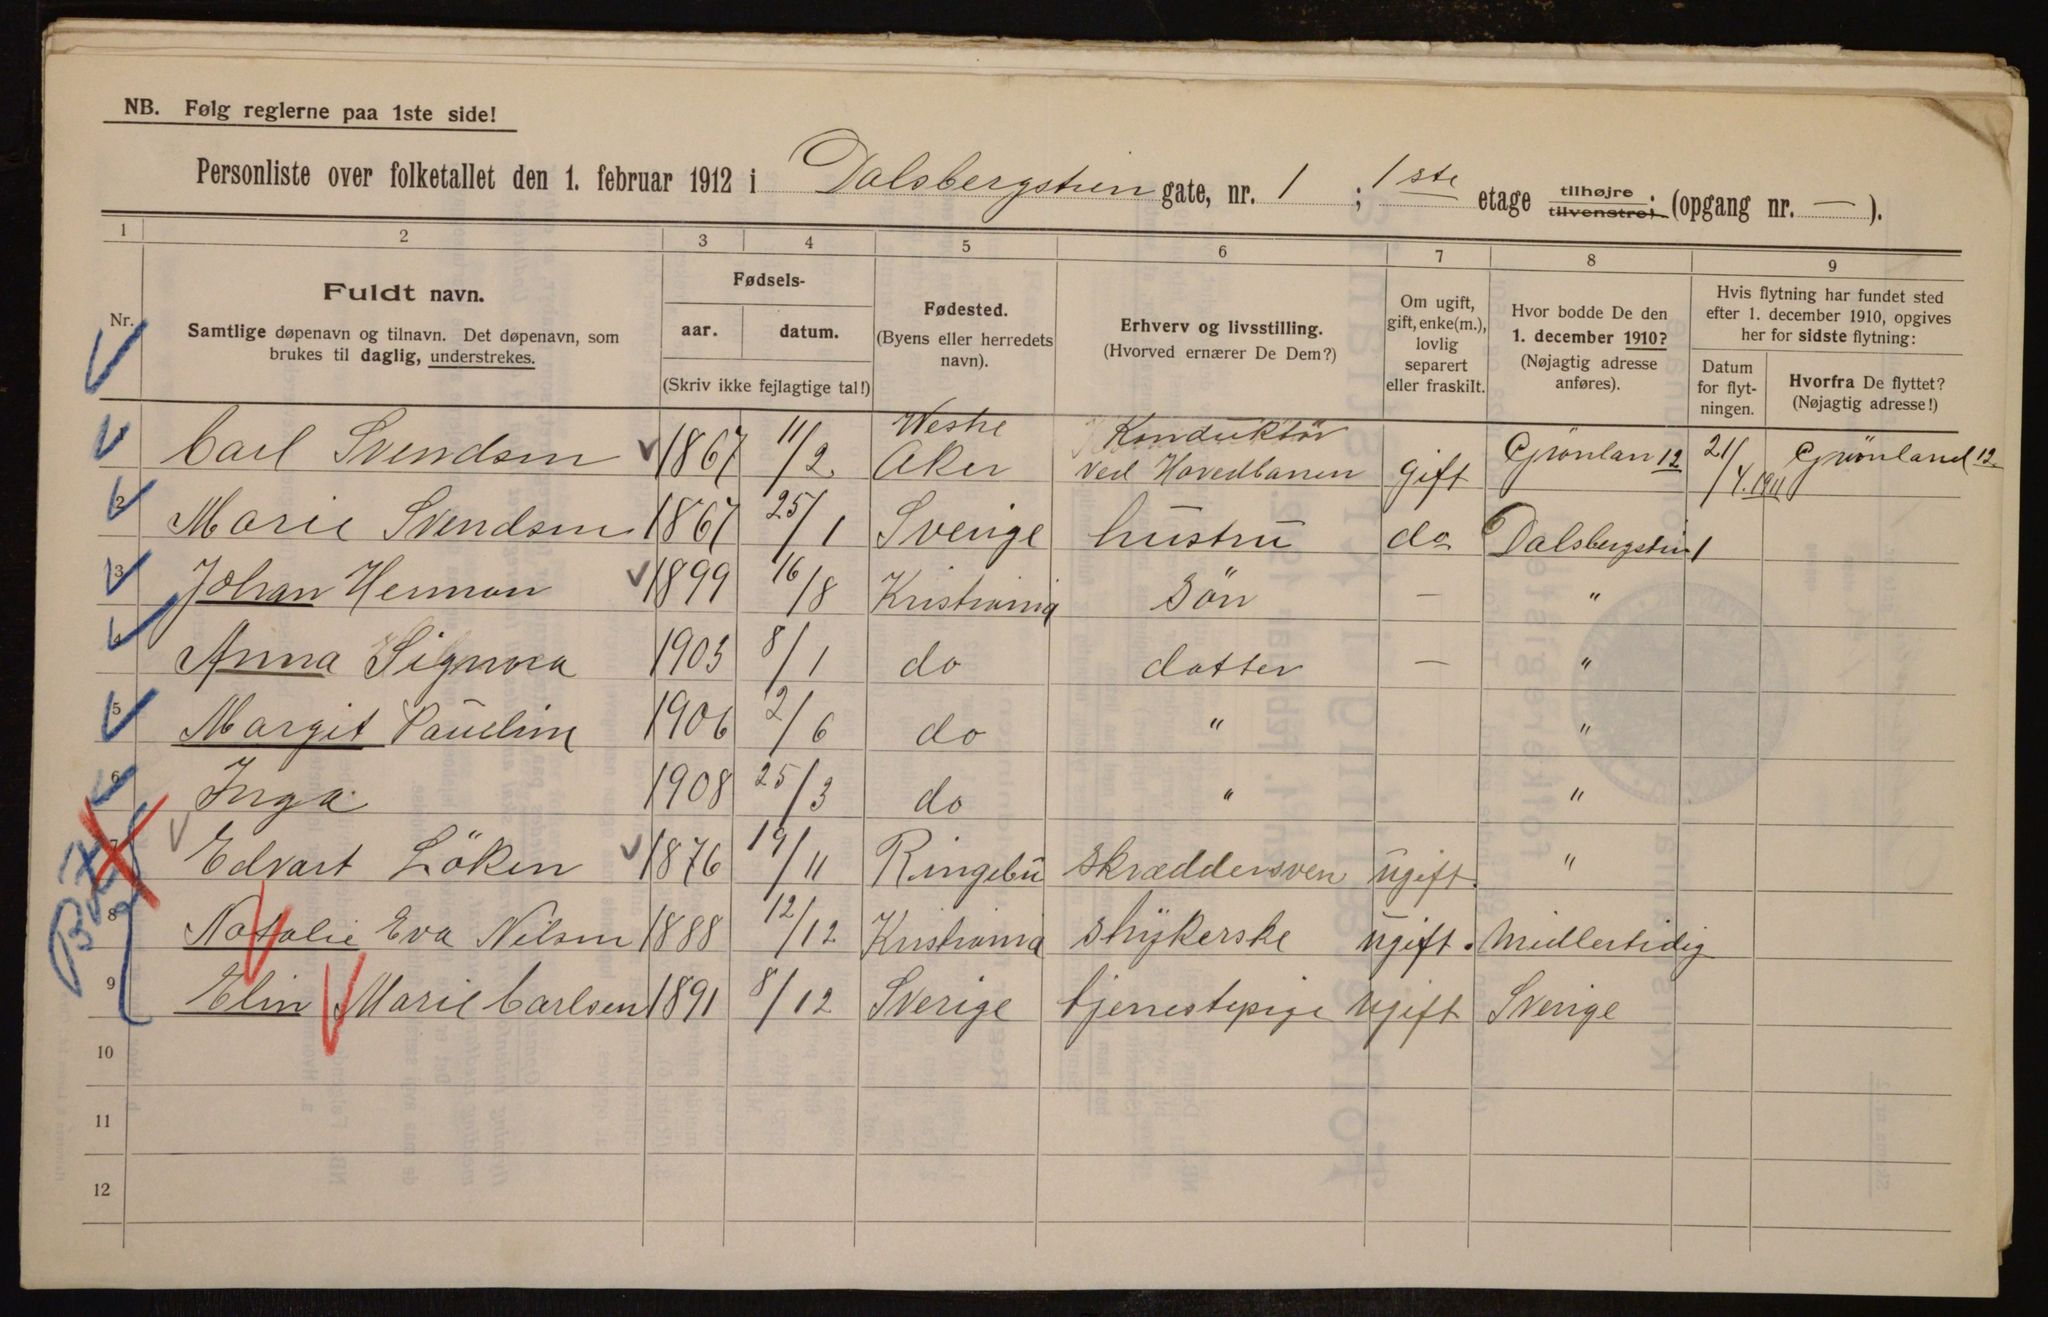 NB. Følg reglerne paa 1ste side!
Personliste over folketallet den 1. februar 1912 i Dalsbergstien gate, nr. 1 ; 1ste etage tilhøjre tilvenstre; (opgang nr. — ).
1 2 3 4 5 6 7 8 9
Nr.
Fuldt navn.
Samtlige døpenavn og tilnavn. Det døpenavn, som
brukes til daglig, understrekes.
Fødsels-
aar. datum.
(Skriv ikke fejlagtige tal!)
Fødested.
(Byens eller herredets
navn).
Erhverv og livsstilling.
(Hvorved ernærer De Dem?)
Om ugift,
gift, enke(m.),
lovlig
separert
eller fraskilt.
Hvor bodde De den
1. december 1910?
(Nøjagtig adresse
anføres).
Hvis flytning har fundet sted
efter 1. december 1910, opgives
her for sidste flytning:
Datum
for flyt-
ningen.
Hvorfra De flyttet?
(Nøjagtig adresse!)
Carl Svendsen 1867 11/2 Westre Aker Konduktör ved Hovedbanen gift Grönlan 12 21/4.1911 Grönland 12
2 Marie Svendsen 1867 25/1 Sverige hustru do Dalsbergstien 1
3 Johan Herman 1899 16/8 Kristiania Sön — "
4 Anna Signora 1903 8/1 do datter — "
5 Margit Pauline 1906 2/6 do " "
6 Inga 1908 25/3 do " "
7 Edvart Löken 1876 19/11 Ringebu skræddersven ugift "
8 Natalie Eva Nilsen 1888 12/12 Kristiania strykerske ugift. Midlertidig
9 Elin Marie Carlsen 1891 8/12 Sverige tjenestepige ugift Sverige
10
11
12